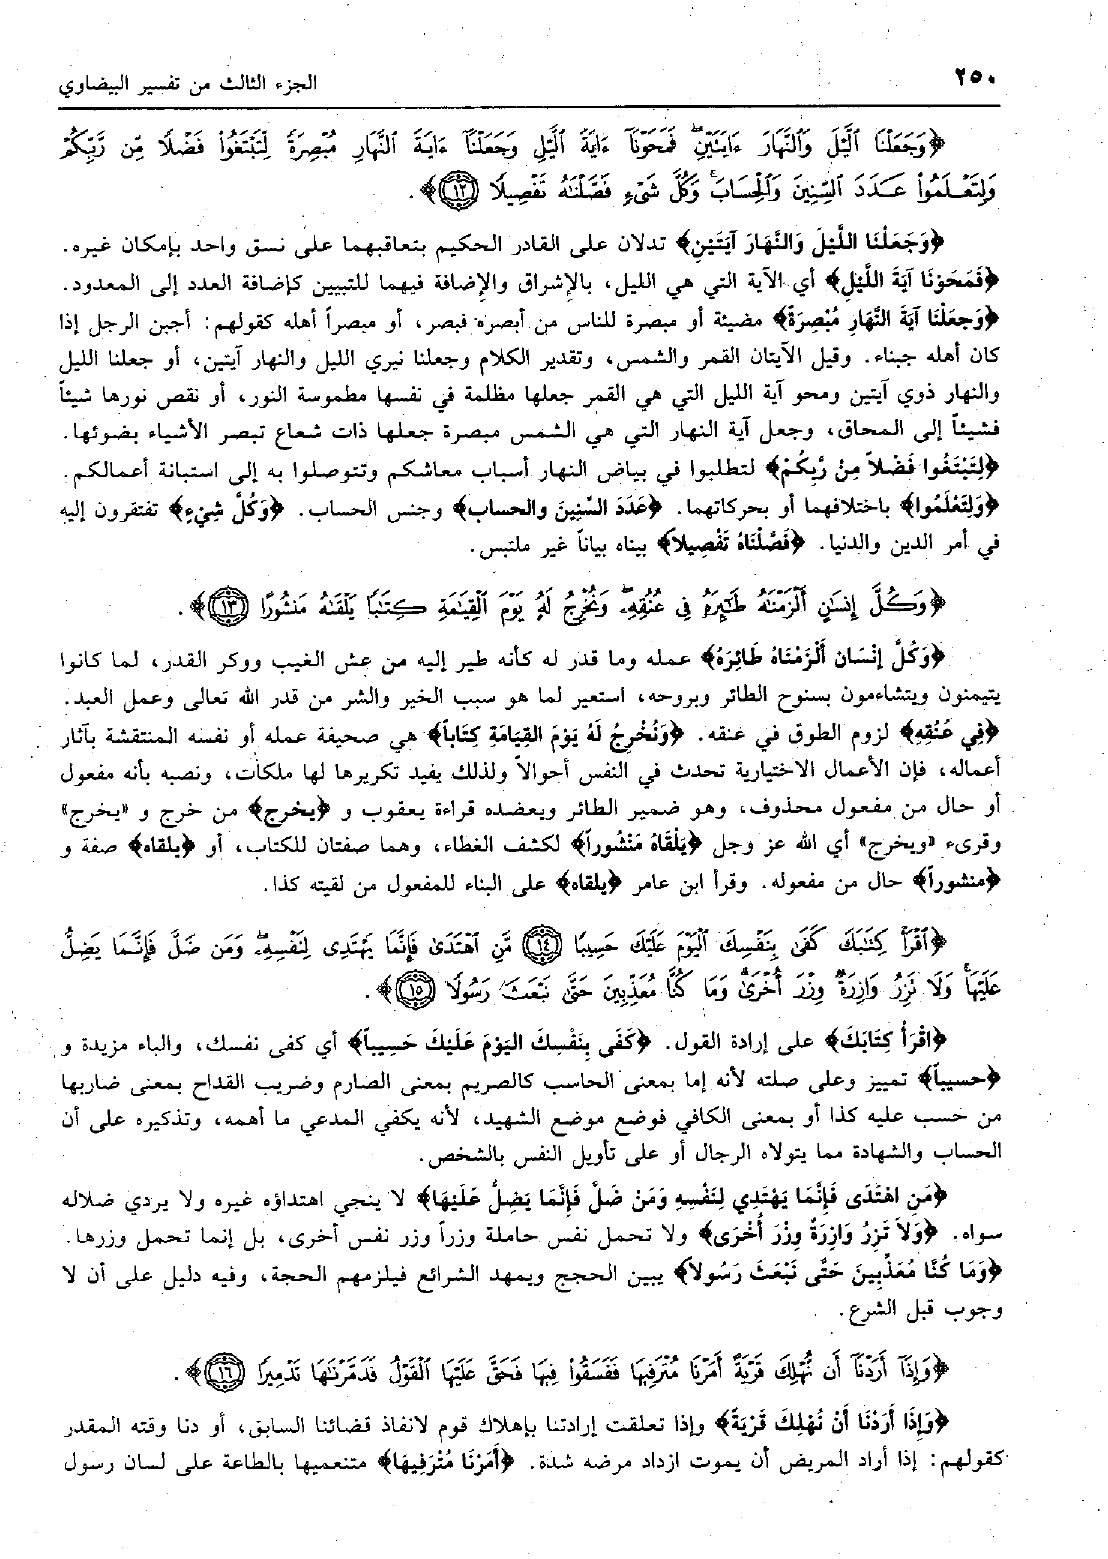 ٢٥٠
الجزء الثالث من تفسير البيضاوي
﴿وَجَعَلْنَا ٱلَّيْلَ وَٱلنَّهَارَ ءَايَتَيْنِۖ فَمَحَوْنَآ ءَايَةَ ٱلَّيْلِ وَجَعَلْنَآ ءَايَةَ ٱلنَّهَارِ مُبْصِرَةً لِّتَبْتَغُوا۟ فَضْلًا مِّن رَّبِّكُمْ
وَلِتَعْلَمُوا۟ عَدَدَ ٱلسِّنِينَ وَٱلْحِسَابَۚ وَكُلَّ شَىْءٍ فَصَّلْنَٰهُ تَفْصِيلًا ١٢﴾.
﴿وَجَعَلْنَا اللَّيْلَ وَالنَّهَارَ آيَتَيْنِ﴾ تدلان على القادر الحكيم بتعاقبهما على نسق واحد بإمكان غيره.
﴿فَمَحَوْنَا آيَةَ اللَّيْلِ﴾ أي الآية التي هي الليل، بالإشراق والإضافة فيهما للتبيين كإضافة العدد إلى المعدود.
﴿وَجعلْنَا آيَةَ النَّهَارِ مُبْصِرَةً﴾ مضيئة أو مبصرة للناس من أبصره فبصر، أو مبصراً أهله كقولهم: أجبن الرجل إذا
كان أهله جبناء. وقيل الآيتان القمر والشمس، وتقدير الكلام وجعلنا نيري الليل والنهار آيتين، أو جعلنا الليل
والنهار ذوي آيتين ومحو آية الليل التي هي القمر جعلها مظلمة في نفسها مطموسة النور، أو نقص نورها شيئاً
فشيئاً إلى المحاق، وجعل آية النهار التي هي الشمس مبصرة جعلها ذات شعاع تبصر الأشياء بضوئها.
﴿لِتَبْتَغُوا فَضْلاً مِنْ رَّبِكُمْ﴾ لتطلبوا في بياض النهار أسباب معاشكم وتتوصلوا به إلى استبانة أعمالكم.
﴿وَلِتَعْلَمُوا﴾ باختلافهما أو بحركاتهما. ﴿عَدَدَ السِّنِينَ والحساب﴾ وجنس الحساب. ﴿وَكُلَّ شيْءٍ﴾ تفتقرون إليه
في أمر الدين والدنيا. ﴿فَصَّلْنَاهُ تَفْصِيلاً﴾ بيناه بياناً غير ملتبس.
﴿وَكُلَّ إِنسَٰنٍ أَلْزَمْنَٰهُ طَٰٓئِرَهُۥ فِى عُنُقِهِۦۖ وَنُخْرِجُ لَهُۥ يَوْمَ ٱلْقِيَٰمَةِ كِتَٰبًا يَلْقَىٰهُ مَنشُورًا ١٣﴾.
﴿وَكُلَّ إِنْسَان أَلْزَمْنَاهُ طَائِرَهُ﴾ عمله وما قدر له كأنه طير إليه من عش الغيب ووكر القدر، لما كانوا
يتيمنون ويتشاءمون بسنوح الطائر وبروحه، استعير لما هو سبب الخير والشر من قدر الله تعالى وعمل العبد.
﴿فِي عُنُقِهِ﴾ لزوم الطوق في عنقه. ﴿وَنُخْرِجُ لَهُ يَوْمَ القِيَامَةِ كِتَاباً﴾ هي صحيفة عمله أو نفسه المنتقشة بآثار
أعماله، فإن الأعمال الاختيارية تحدث في النفس أحوالاً ولذلك يفيد تكريرها لها ملكات، ونصبه بأنه مفعول
أو حال من مفعول محذوف، وهو ضمير الطائر ويعضده قراءة يعقوب و ﴿يخرج﴾ من خرج و «يخرج»
وقرىء «ويخرج» أي الله عز وجل ﴿يَلْقَاهُ مَنْشُوراً﴾ لكشف الغطاء، وهما صفتان للكتاب، أو ﴿يلقاه﴾ صفة و
﴿منشوراً﴾ حال من مفعوله. وقرأ ابن عامر ﴿يلقاه﴾ على البناء للمفعول من لقيته كذا.
﴿ٱقْرَأْ كِتَٰبَكَ كَفَىٰ بِنَفْسِكَ ٱلْيَوْمَ عَلَيْكَ حَسِيبًا ١٤ مَّنِ ٱهْتَدَىٰ فَإِنَّمَا يَهْتَدِى لِنَفْسِهِۦۖ وَمَن ضَلَّ فَإِنَّمَا يَضِلُّ
عَلَيْهَاۚ وَلَا تَزِرُ وَازِرَةٌ وِزْرَ أُخْرَىٰۗ وَمَا كُنَّا مُعَذِّبِينَ حَتَّىٰ نَبْعَثَ رَسُولًا ١٥﴾.
﴿اقْرَأْ كِتَابَكَ﴾ على إرادة القول. ﴿كَفَى بِنَفْسِكَ اليَوْمَ عَلَيْكَ حَسِيباً﴾ أي كفى نفسك، والباء مزيدة و
﴿حسيباً﴾ تمييز وعلى صلته لأنه إما بمعنى الحاسب كالصريم بمعنى الصارم وضريب القداح بمعنى ضاربها
من حسب عليه كذا أو بمعنى الكافي فوضع موضع الشهيد، لأنه يكفي المدعي ما أهمه، وتذكيره على أن
الحساب والشهادة مما يتولاه الرجال أو على تأويل النفس بالشخص.
﴿مَنِ اهْتَدَى فَإِنَّمَا يَهْتَدِي لِنَفْسِهِ وَمَنْ ضَلَّ فَإِنَّمَا يَضِلُّ عَلَيْهَا﴾ لا ينجي اهتداؤه غيره ولا يردي ضلاله
سواه. ﴿وَلاَ تَزِرُ وَازِرَةٌ وِزْرَ أُخْرَى﴾ ولا تحمل نفس حاملة وزراً وزر نفس أخرى، بل إنما تحمل وزرها.
﴿وَمَا كُنَّا مُعَذِّبِينَ حَتَّى نَبْعَثَ رَسُولاً﴾ يبين الحجج ويمهد الشرائع فيلزمهم الحجة، وفيه دليل على أن لا
وجوب قبل الشرع.
﴿وَإِذَآ أَرَدْنَآ أَن نُّهْلِكَ قَرْيَةً أَمَرْنَا مُتْرَفِيهَا فَفَسَقُوا۟ فِيهَا فَحَقَّ عَلَيْهَا ٱلْقَوْلُ فَدَمَّرْنَٰهَا تَدْمِيرًا ١٦﴾.
﴿وَإِذَا أَرَدْنَا أَنْ نُهْلِكَ قَرْيَةً﴾ وإذا تعلقت إرادتنا بإهلاك قوم لانفاذ قضائنا السابق، أو دنا وقته المقدر
كقولهم: إذا أراد المريض أن يموت ازداد مرضه شدة. ﴿أَمَرْنَا مُتْرَفِيهَا﴾ متنعميها بالطاعة على لسان رسول